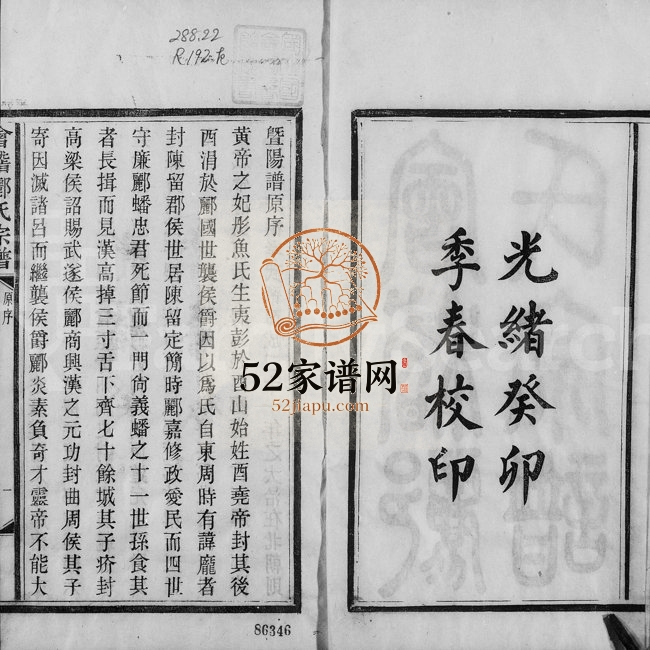 光緒癸卯
季春校印
288.22
86346
暨陽譜原序
黃帝之妃彤魚氏生夷彭於西山始姓酉堯帝封其後
酉涓於酈國世襲侯爵因以爲氏自東周時有諱龐者
封陳留郡侯世居陳留定簡時酈嘉修政愛民而四世
守廉酈蟠忠君死節而一門尙義蟠之十一世孫食其
者長揖而見漢高掉三寸舌下齊七十餘城其子疥封
高梁侯詔賜武遂侯酈商興漢之元功封曲周侯其子
寄因滅諸呂而繼襲侯爵酈炎素負奇才靈帝不能大
會稽酈氏宗譜
原序
一
52家谱网
52jiapu.com